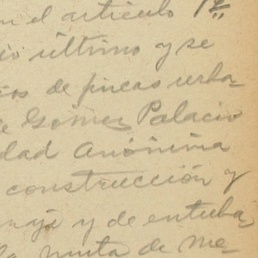 en el artículo 12
último y se
os de fincas urba-
e Gómez Palacio
dad Anónima
construcción y
naje y de entuba-
la junta de me-